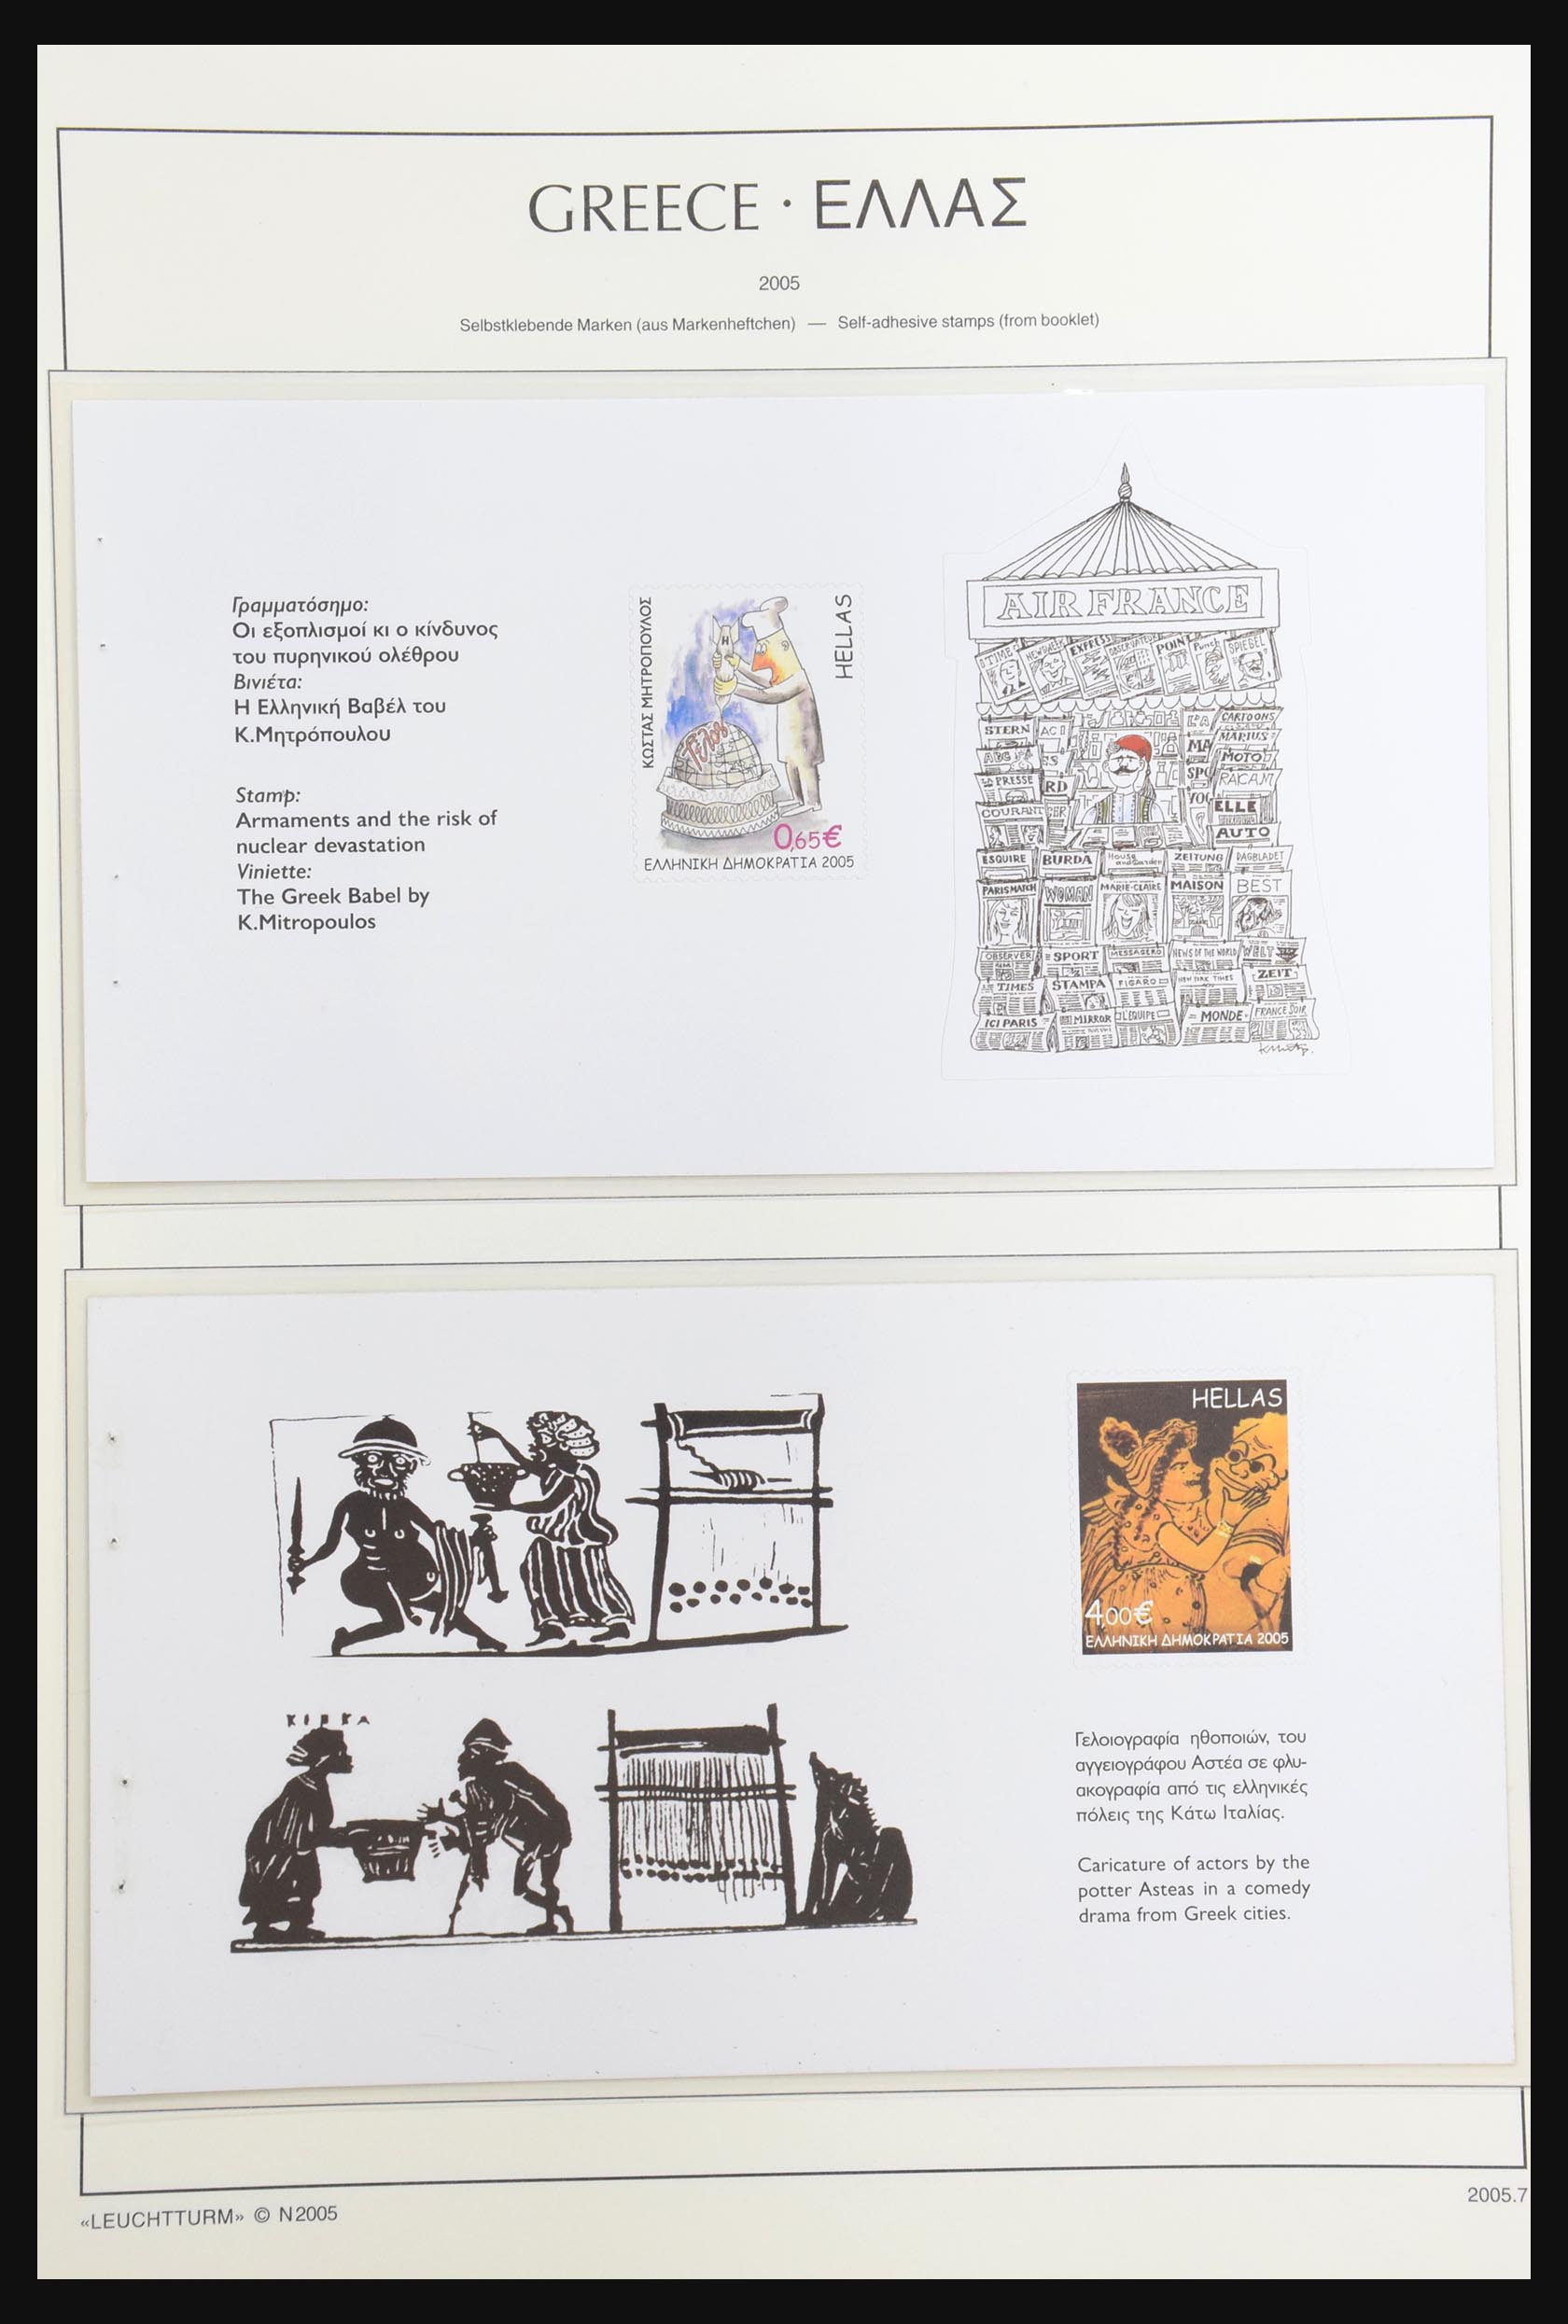 GREECE · ΕΛΛΑΣ
2005
Selbstklebende Marken (aus Markenheftchen) — Self-adhesive stamps (from booklet)
Γραμματόσημο:
Οι εξοπλισμοί κι ο κίνδυνος
του πυρηνικού ολέθρου
Βινιέτα:
Η Ελληνική Βαβέλ του
Κ.Μητρόπουλου
Stamp:
Armaments and the risk of
nuclear devastation
Viniette:
The Greek Babel by
K.Mitropoulos
ΚΩΣΤΑΣ ΜΗΤΡΟΠΟΥΛΟΣ
HELLAS
H
Τέλος
0,65€
ΕΛΛΗΝΙΚΗ ΔΗΜΟΚΡΑΤΙΑ 2005
AIR FRANCE
TIME NEWSWEEK EXPRESS POINT Punch SPIEGEL
STERN
CARTOONS
MARIUS
ABC
MA
MOTO
PRESSE
RD
SPO
COURANT
ELLE
AUTO
ESQUIRE BURDA House and Garden ZEITUNG DAGBLADET
PARIS MATCH WOMAN MARIE-CLAIRE MAISON BEST
OBSERVER SPORT MESSAGERO NEWS OF THE WORLD WELT
TIMES STAMPA FIGARO NEW YORK TIMES ZEIT
ICI PARIS MIRROR L'EQUIPE MONDE FRANCE SOIR
HELLAS
4,00€
ΕΛΛΗΝΙΚΗ ΔΗΜΟΚΡΑΤΙΑ 2005
Γελοιογραφία ηθοποιών, του
αγγειογράφου Αστέα σε φλυ-
ακογραφία από τις ελληνικές
πόλεις της Κάτω Ιταλίας.
Caricature of actors by the
potter Asteas in a comedy
drama from Greek cities.
«LEUCHTTURM» © N2005
2005.7